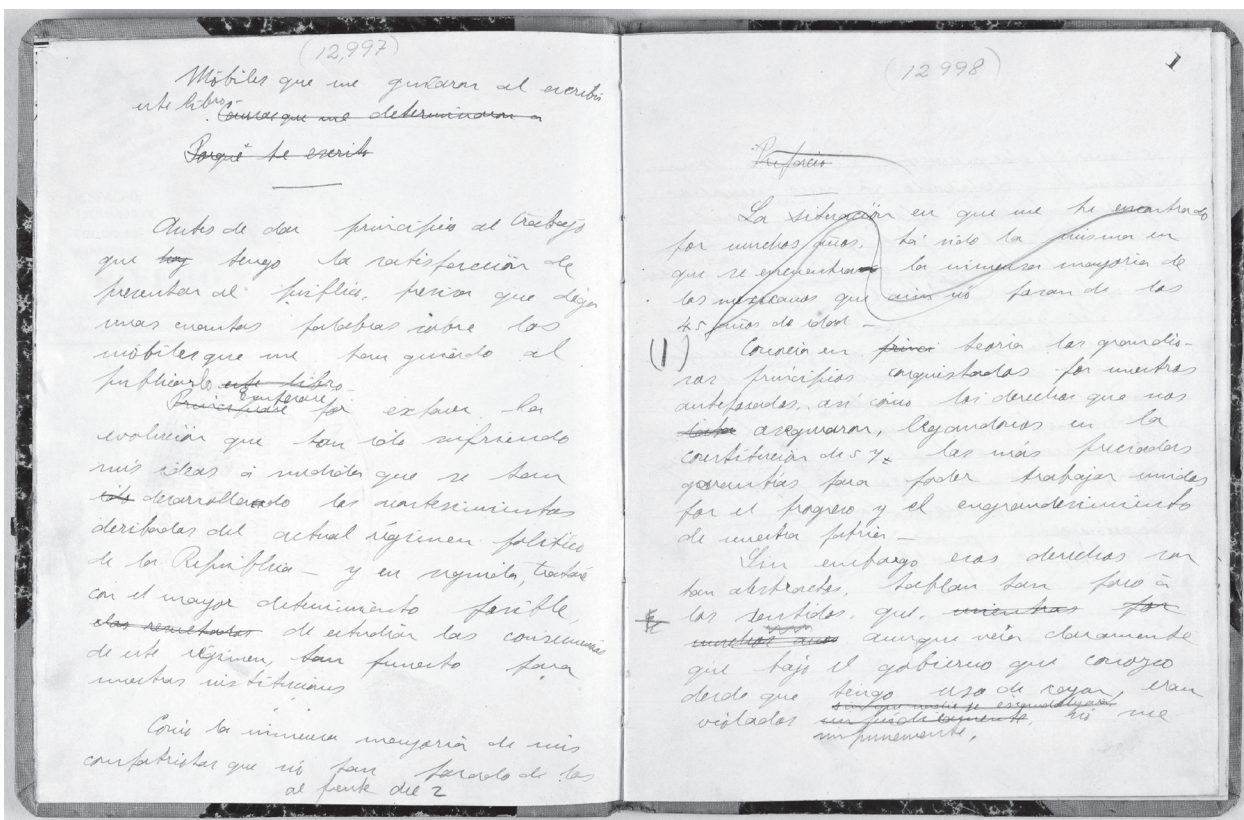 (12,997)
Móbiles que me guiaron al escribir
este libro. Causas que me determinaron a
Porqué he escrito
Antes de dar principio al trabajo
que hoy tengo la satisfacción de
presentar al público, precisa que diga
unas cuantas palabras sobre los
móbiles que me han guiado al
publicarlo este libro.
Principiaré Empezaré por exponer la
evolución que han ido sufriendo
mis ideas á medida que se han
ido desarrollando los acontecimientos
deribados del actual régimen político
de la República — y en seguida, trataré
con el mayor detenimiento posible,
los resultados de estudiar las consecuencias
de este régimen, tan funesto para
nuestras instituciones
Como la inmensa mayoría de mis
compatriotas que no han pasado de los
al frente del 2
(12 998)
1
Prefacio
La situación en que me he encontrado
por muchos años, há sido la misma en
que se encuentran la inmensa mayoría de
los mexicanos que aún no pasan de los
45 años de edad —
(1)
Conocía en princi teoría los grandio-
sos principios conquistados por nuestros
antepasados, así como los derechos que nos
asguraron, legándonos en la
constitución de 57 las más preciadas
garantías para poder trabajar unidos
por el progreso y el engrandecimiento
de nuestra patria —
Sin embargo esos derechos son
tan abstractos, hablan tan poco á
los sentidos, que, mientras por
muchos años aunque veía claramente
que bajo el gobierno que conozco
desde que tengo uso de razon, eran
sin que nadie se escandalizara
violados, no me
impunemente,